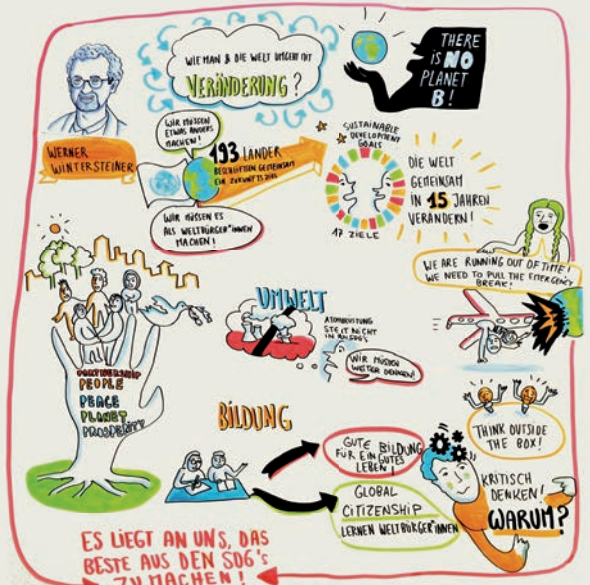 WIE MAN & DIE WELT UMGEHT MIT
VERÄNDERUNG?
THERE
iS NO
PLANET
B!
WERNER
WINTERSTEINER
WIR MÜSSEN
ETWAS ANDERS
MACHEN!
193 LÄNDER
BESCHLIEẞEN GEMEINSAM
EIN ZUKUNFTS
WIR MÜSSEN ES
ALS WELTBÜRGER*INNEN
MACHEN!
SUSTAINABLE
DEVELOPMENT
GOALS
17 ZIELE
DIE WELT
GEMEINSAM
IN 15 JAHREN
VERÄNDERN!
WE ARE RUNNING OUT OF TIME!
WE NEED TO PULL THE EMERGENCY
BREAK!
PARTNERSHIP
PEOPLE
PEACE
PLANET
PROSPERITY
UMWELT
ATOMRÜSTUNG
STEHT NICHT
IN SDG's
WIR MÜSSEN
WEITER DENKEN!
BILDUNG
GUTE BILDUNG
FÜR EIN GUTES
LEBEN!
GLOBAL
CITIZENSHIP
LERNEN WELTBÜRGER*INNEN
THINK OUTSIDE
THE BOX!
KRITISCH
DENKEN!
WARUM?
ES LIEGT AN UNS, DAS
BESTE AUS DEN SDG's
ZU MACHEN!